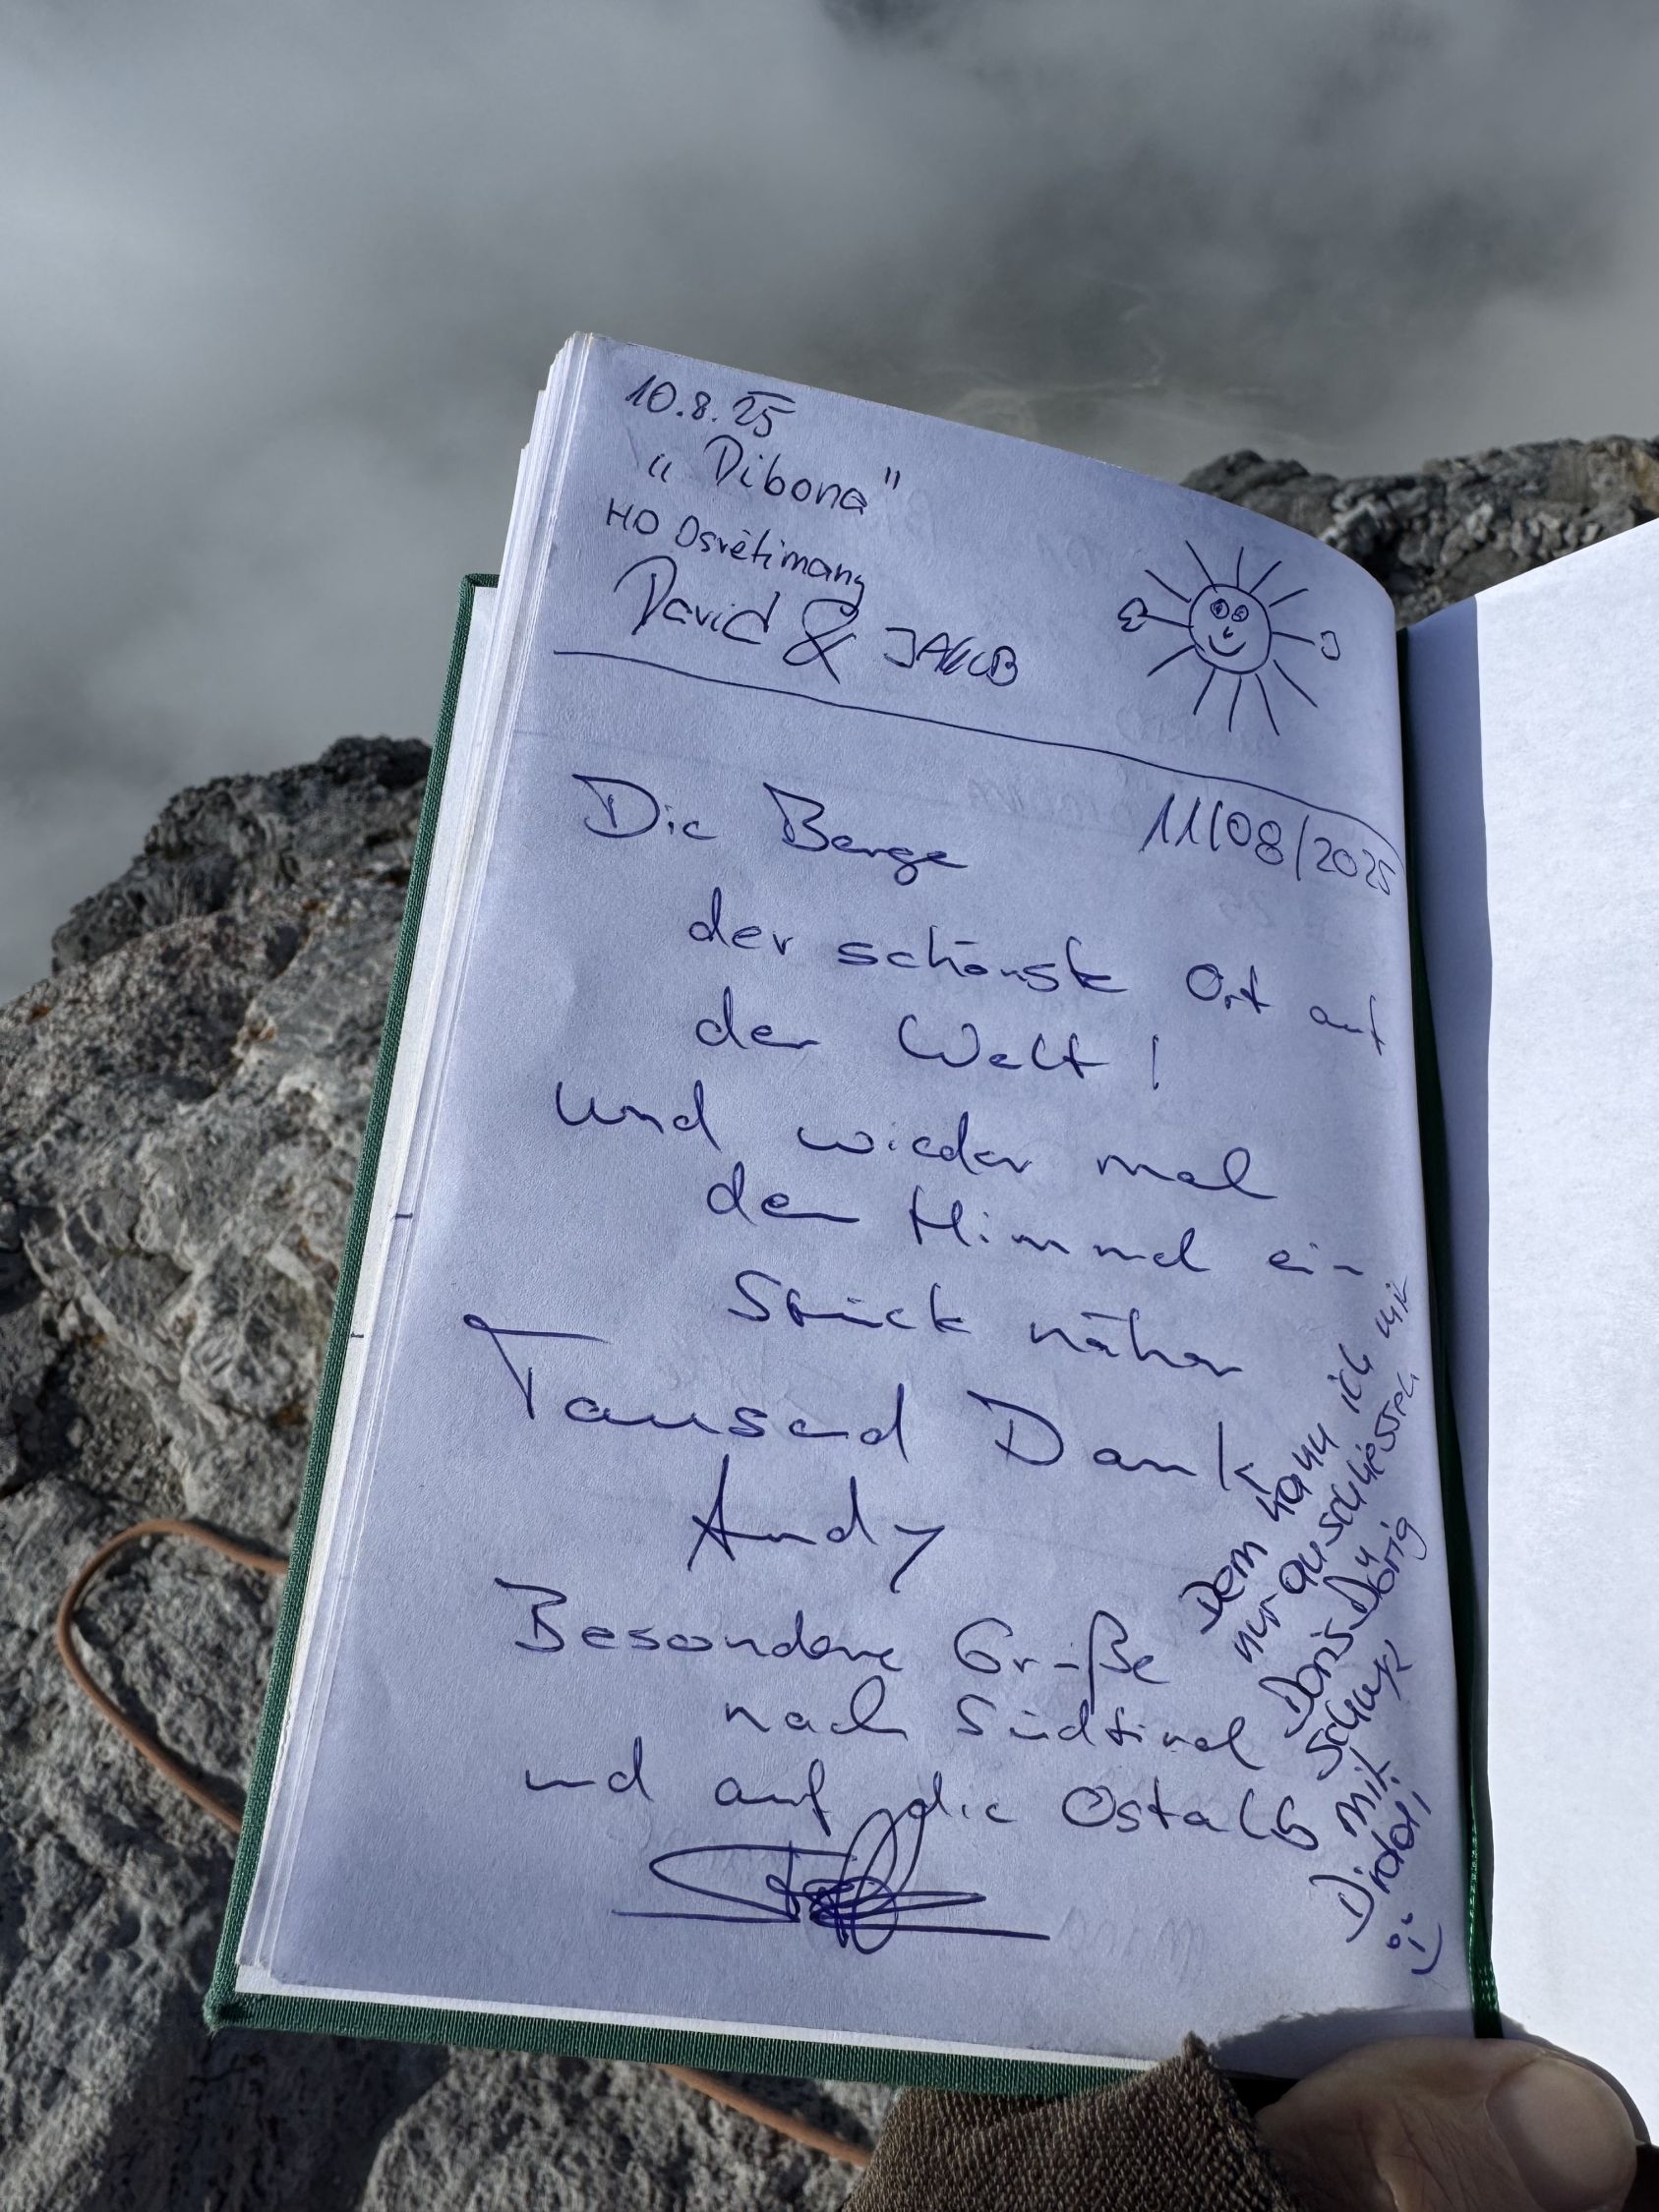 10.8.25
"Dibona"
HO Osvětimany
David & JAKUB
11/08/2025
Die Berge
der schönste Ort auf
der Welt!
Und wieder mal
dem Himmel ein
Stück näher
Tausend Dank
Andy
Besondere Grüße
nach Südtirol
und auf die Ostalb
Dem kann ich mich
nur anschliessen
Doris Dörig
mit